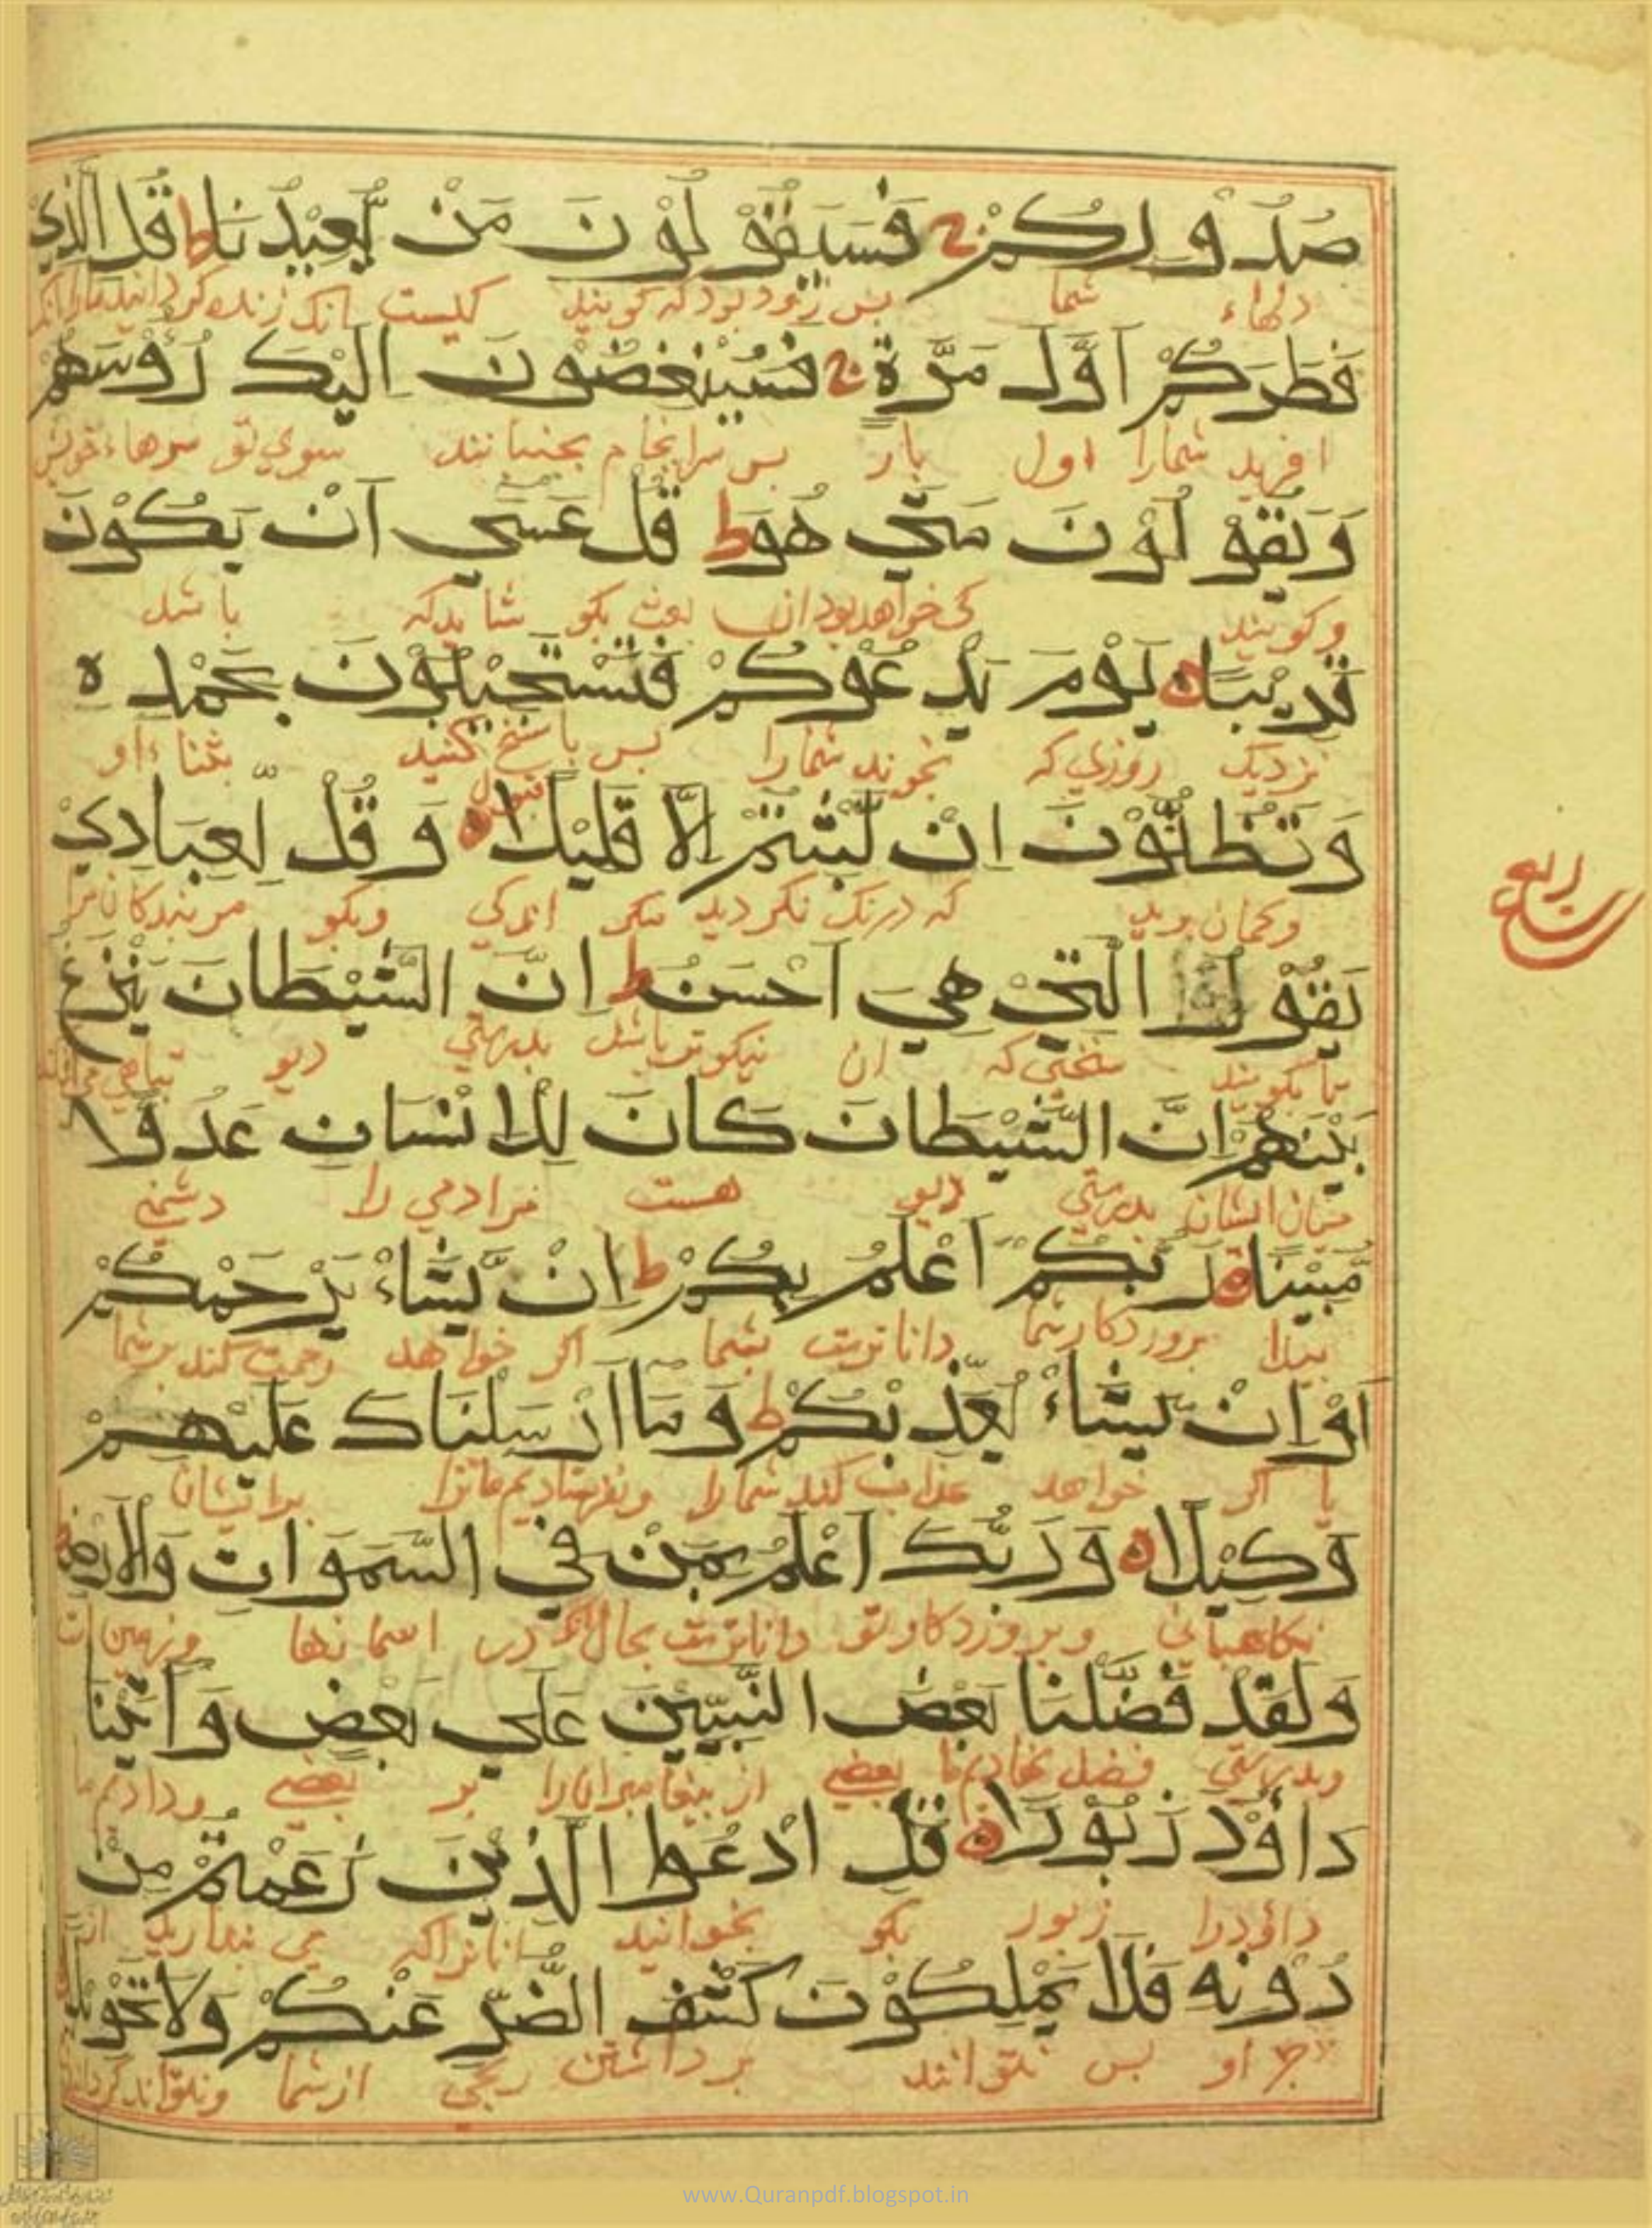 صُدُورِكُمْ ج فَسَيَقُوْلُوْنَ مَنْ يُّعِيْدُنَا ط قُلِ الَّذِيْ
دلهاء شما پس زود بود که گویند کیست انک زنده گرداند ما را
فَطَرَكُمْ اَوَّلَ مَرَّةٍ ج فَسَيُنْغِضُوْنَ اِلَيْكَ رُؤُسَهُمْ
افرید شمارا اول بار پس سرانجام بجنبانند سوی تو سرهاء خویش
وَيَقُوْلُوْنَ مَتٰي هُوَ ط قُلْ عَسٰٓي اَنْ يَكُوْنَ
وگویند کی خواهد بود ان بعث بگو شاید که باشد
قَرِيْبًا ه يَوْمَ يَدْعُوْكُمْ فَتَسْتَجِيْبُوْنَ بِحَمْدِهٖ
نزدیک روزی که بخوند شمارا پس پاسخ کنید بثناء او
وَتَظُنُّوْنَ اِنْ لَّبِثْتُمْ اِلَّا قَلِيْلًا ه وَقُلْ لِّعِبَادِيْ
وگمان برید که درنک نکردید مگر اندکی وبگو مر بندکان مرا
يَقُوْلُوا الَّتِيْ هِيَ اَحْسَنُ ط اِنَّ الشَّيْطَانَ يَنْزَغُ
تا بگویند سخنی که ان نیکوتر باشد بدرستی دیو تباهی
ربع
بَيْنَهُمْ اِنَّ الشَّيْطَانَ كَانَ لِلْاِنْسَانِ عَدُوًّا
میان ایشان بدرستی دیو هست مرادمی را دشمنی
مُّبِيْنًا ه رَبُّكُمْ اَعْلَمُ بِكُمْ ط اِنْ يَّشَاءْ يَرْحَمْكُمْ
پیدا پروردکار شما داناترست بشما اکر خواهد رحمت کند بر شما
اَوْ اِنْ يَّشَاءْ يُعَذِّبْكُمْ ط وَمَا اَرْسَلْنَاكَ عَلَيْهِمْ
یا اکر خواهد عذاب کند شمارا ونفرستادیم ما ترا برایشان
وَكِيْلًا ه وَرَبُّكَ اَعْلَمُ بِمَنْ فِي السَّمَوَاتِ وَالْاَرْضِ
نکاهبانی وپروردکار تو داناترست بحال انک در اسمانها وزمین
وَلَقَدْ فَضَّلْنَا بَعْضَ النَّبِيّٖنَ عَلٰي بَعْضٍ وَاٰتَيْنَا
وبدرستی فضل نهادیم ما بعضی از پیغامبران را بر بعضی ودادیم ما
دَاوٗدَ زَبُوْرًا ه قُلِ ادْعُوا الَّذِيْنَ زَعَمْتُمْ مِنْ
داؤد را زبور بگو بخوانید انانرا که می پندارید از
دُوْنِهٖ فَلَا يَمْلِكُوْنَ كَشْفَ الضُّرِّ عَنْكُمْ وَلَا تَحْوِيْلًا
جز او پس نتوانند بر داشتن رنجی از شما ونتوانند
www.Quranpdf.blogspot.in